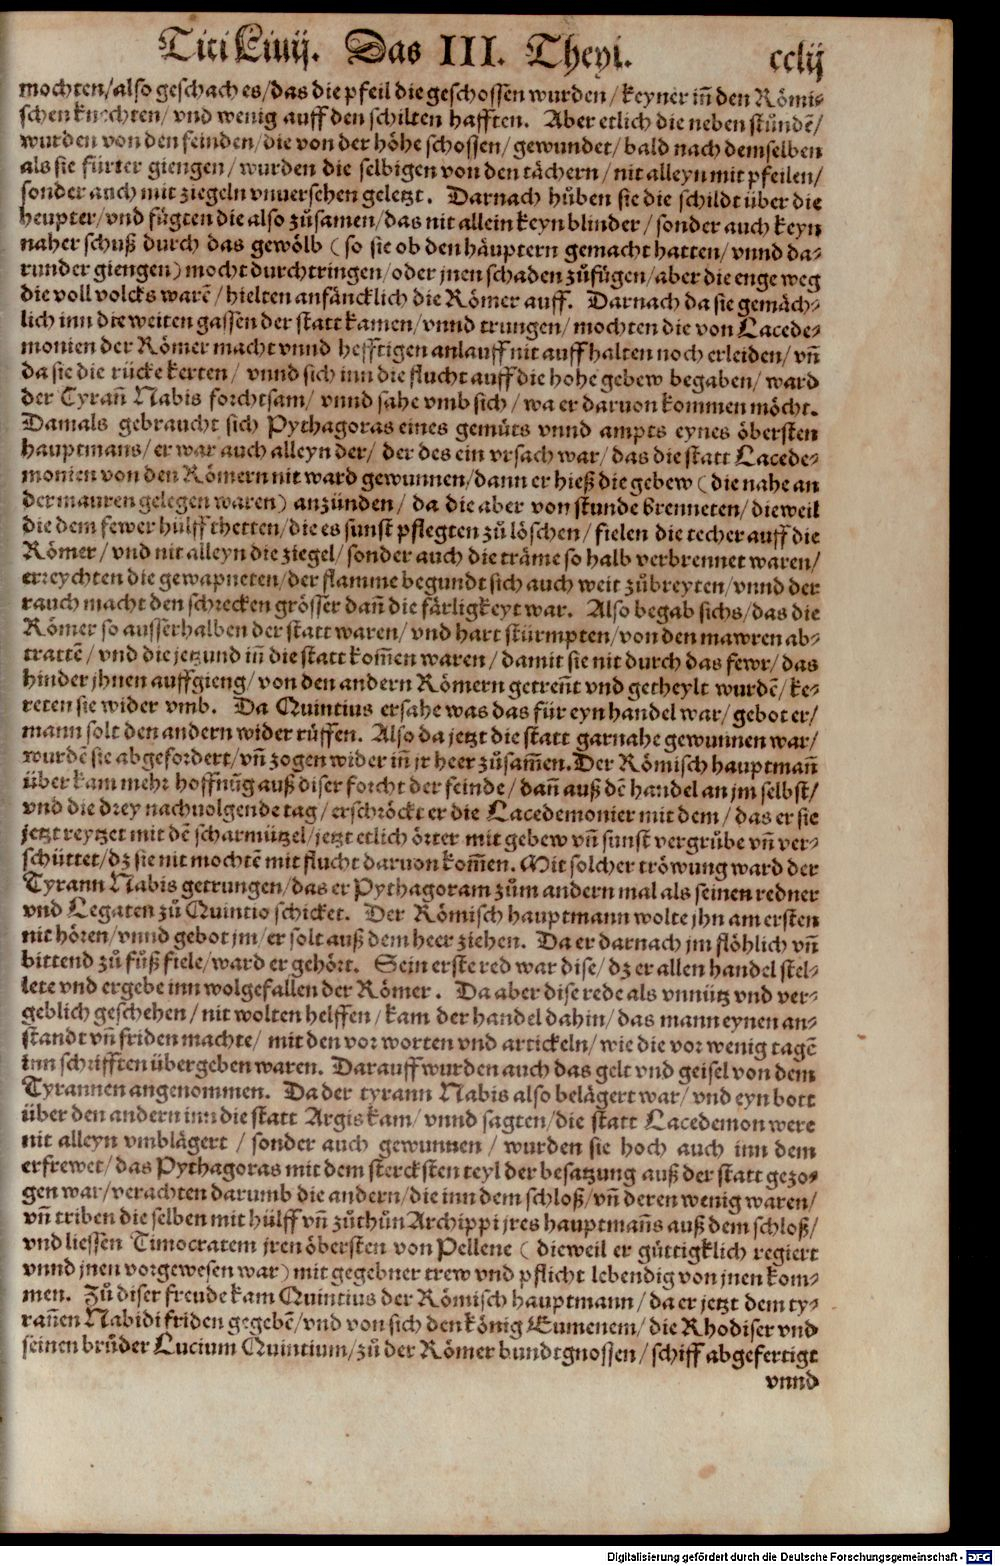 Titi Liuij. Das III. Theyl. cclij
mochten/also geschach es/das die pfeil die geschossen wurden/keyner iñ den Römi⸗
schen knechten/vnd wenig auff den schilten hafften. Aber etlich die neben stůndẽ/
wurden von den feinden/die von der höhe schossen/gewundet/bald nach demselben
als sie fürter giengen/wurden die selbigen von den tächern/nit alleyn mit pfeilen/
sonder auch mit ziegeln vnuersehen geletzt. Darnach hůben sie die schildt über die
heupter/vnd fůgten die also zůsamen/das nit allein keyn blinder/sonder auch keyn
naher schuß durch das gewölb (so sie ob den häuptern gemacht hatten/vnnd da⸗
runder giengen) mocht durchtringen/oder jnen schaden zůfůgen/aber die enge weg
die voll volcks warẽ/hielten anfäncklich die Römer auff. Darnach da sie gemäch⸗
lich inn die weiten gassen der statt kamen/vnnd trungen/mochten die von Lacede⸗
monien der Römer macht vnnd hefftigen anlauff nit auffhalten noch erleiden/vñ
da sie die rücke kerten/vnnd sich inn die flucht auff die hohe gebew begaben/ward
der Tyrañ Nabis forchtsam/vnnd sahe vmb sich/wa er daruon kommen möcht.
Damals gebraucht sich Pythagoras eines gemůts vnnd ampts eynes öbersten
hauptmans/er war auch alleyn der/der des ein vrsach war/das die statt Lacede⸗
monien von den Römern nit ward gewunnen/dann er hieß die gebew (die nahe an
der mauren gelegen waren) anzünden/da die aber von stunde brenneten/dieweil
die dem fewer hülff thetten/die es sunst pflegten zů löschen/fielen die techer auff die
Römer/vnd nit alleyn die ziegel/sonder auch die träme so halb verbrennet waren/
erreychten die gewapneten/der flamme begundt sich auch weit zůbreyten/vnnd der
rauch macht den schrecken grösser dañ die färligkeyt war. Also begab sichs/das die
Römer so ausserhalben der statt waren/vnd hart stürmpten/von den mawren ab⸗
trattẽ/vnd die jetzund iñ die statt kom̃en waren/damit sie nit durch das fewr/das
hinder jhnen auffgieng/von den andern Römern getreñt vnd getheylt wurdẽ/ke⸗
reten sie wider vmb. Da Quintius ersahe was das für eyn handel war/gebot er/
mann solt den andern wider růffen. Also da jetzt die statt garnahe gewunnen war/
wurdẽ sie abgefordert/vñ zogen wider iñ jr heer zůsam̃en. Der Römisch hauptmañ
über kam mehr hoffnũg auß diser forcht der feinde/dañ auß dẽ handel an jm selbst/
vnd die drey nachuolgende tag/erschröckt er die Lacedemonier mit dem/das er sie
jetzt reytzet mit dẽ scharmützel/jetzt etlich örter mit gebew vñ sunst vergrůbe vñ ver⸗
schüttet/dz sie nit mochtẽ mit flucht daruon kom̃en. Mit solcher tröwung ward der
Tyrann Nabis getrungen/das er Pythagoram zům andern mal als seinen redner
vnd Legaten zů Quintio schicket. Der Römisch hauptmann wolte jhn am ersten
nit hören/vnnd gebot jm/er solt auß dem heer ziehen. Da er darnach jm flöhlich vñ
bittend zů fůß fiele/ward er gehört. Sein erste red war dise/dz er allen handel stel⸗
lete vnd ergebe inn wolgefallen der Römer. Da aber dise rede als vnnütz vnd ver⸗
geblich geschehen/nit wolten helffen/kam der handel dahin/das mann eynen an⸗
standt vñ friden machte/mit den vorworten vnd artickeln/wie die vor wenig tagẽ
inn schrifften übergeben waren. Darauff wurden auch das gelt vnd geisel von dem
Tyrannen angenommen. Da der tyrann Nabis also belägert war/vnd eyn bott
über den andern inn die statt Argis kam/vnnd sagten/die statt Lacedemon were
nit alleyn vmblägert/sonder auch gewunnen/wurden sie hoch auch inn dem
erfrewet/das Pythagoras mit dem stercksten teyl der besatzung auß der statt gezo⸗
gen war/verachten darumb die andern/die inn dem schloß/vñ deren wenig waren/
vñ triben die selben mit hülff vñ zůthůn Archippi jres hauptmañs auß dem schloß/
vnd liessen Timocratem jren öbersten von Pellene (dieweil er gůttigklich regiert
vnnd jnen vorgewesen war) mit gegebner trew vnd pflicht lebendig von jnen kom⸗
men. Zů diser freude kam Quintius der Römisch hauptmann/da er jetzt dem ty⸗
rañen Nabidi friden gegebẽ/vnd von sich den könig Eumenem/die Rhodiser vnd
seinen brůder Lucium Quintium/zů der Römer bundtgnossen/schiff abgefertigt
vnnd
Digitalisierung gefördert durch die Deutsche Forschungsgemeinschaft - DFG